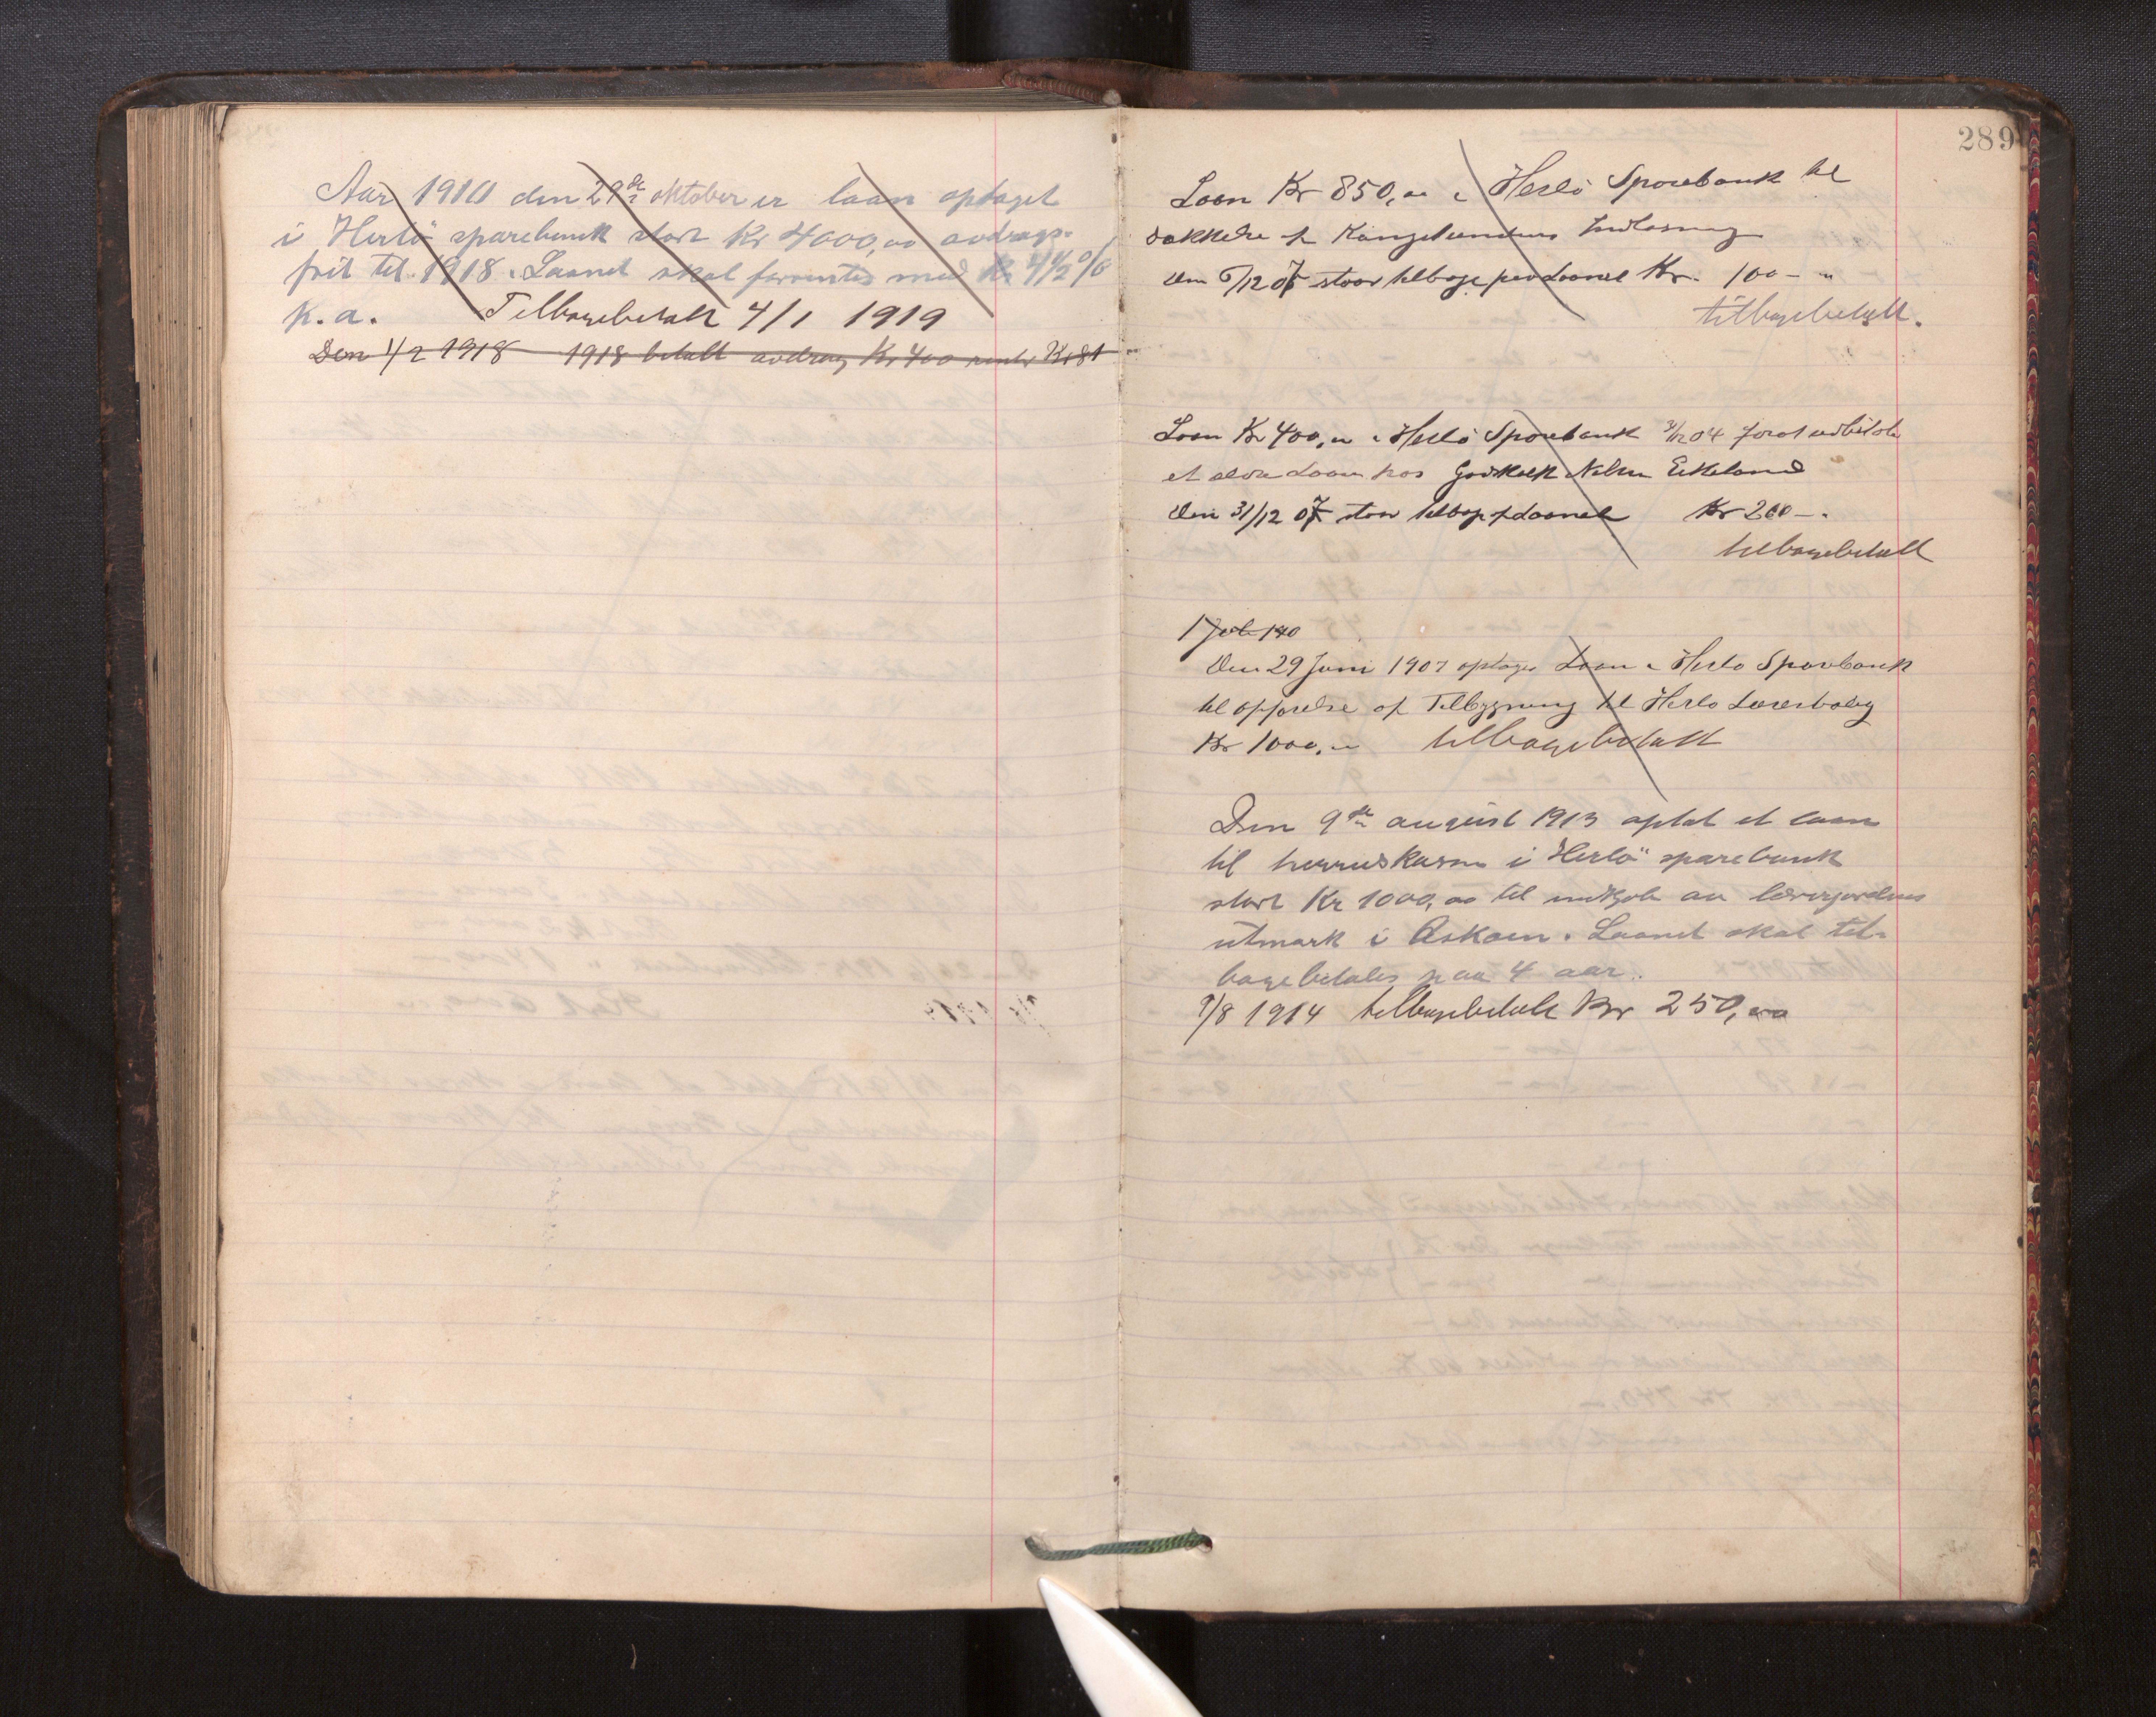 Aar 1910 den 29de oktober er laan optaget
i Herlö sparebank stort Kr 4000,00 avdrags-
frit til 1918. Laanet skal forrentes med 4 1/2 %
p.a. Tilbagebetalt 4/1 1919
Den 1/2 1918 1918 betalt avdrag Kr 400 renter Kr 81
289
Loan Kr 850,00 i Herlö Sparebank til
dækkelse af Indløsning
den /12 07 staar tilbage paa Laanet Kr. 100 - "
tilbagebetalt.
Laan Kr 400,00 i Herlö Sparebank 3/12 04 for at udbetale
et ældre Laan hos Godskalk Nilsen Eikeland
Den 31/12 07 staar tilbage af Laanet Kr 200 - .
tilbagebetalt
Den 29 Juni 1907 optages Laan i Herlo Sparebank
til opførelse af Tilbygning til Herlo Lærerbolig
Kr 1000,00 tilbagebetalt
Den 9de august 1913 optat et laan
til herredskassen i Herlö sparebank
stort Kr 1000,00 til indkjøb av lærerjordens
utmark i Askøen. Laanet skal til-
bagebetales paa 4 aar.
9/8 1914 tilbagebetalt Kr 250,00